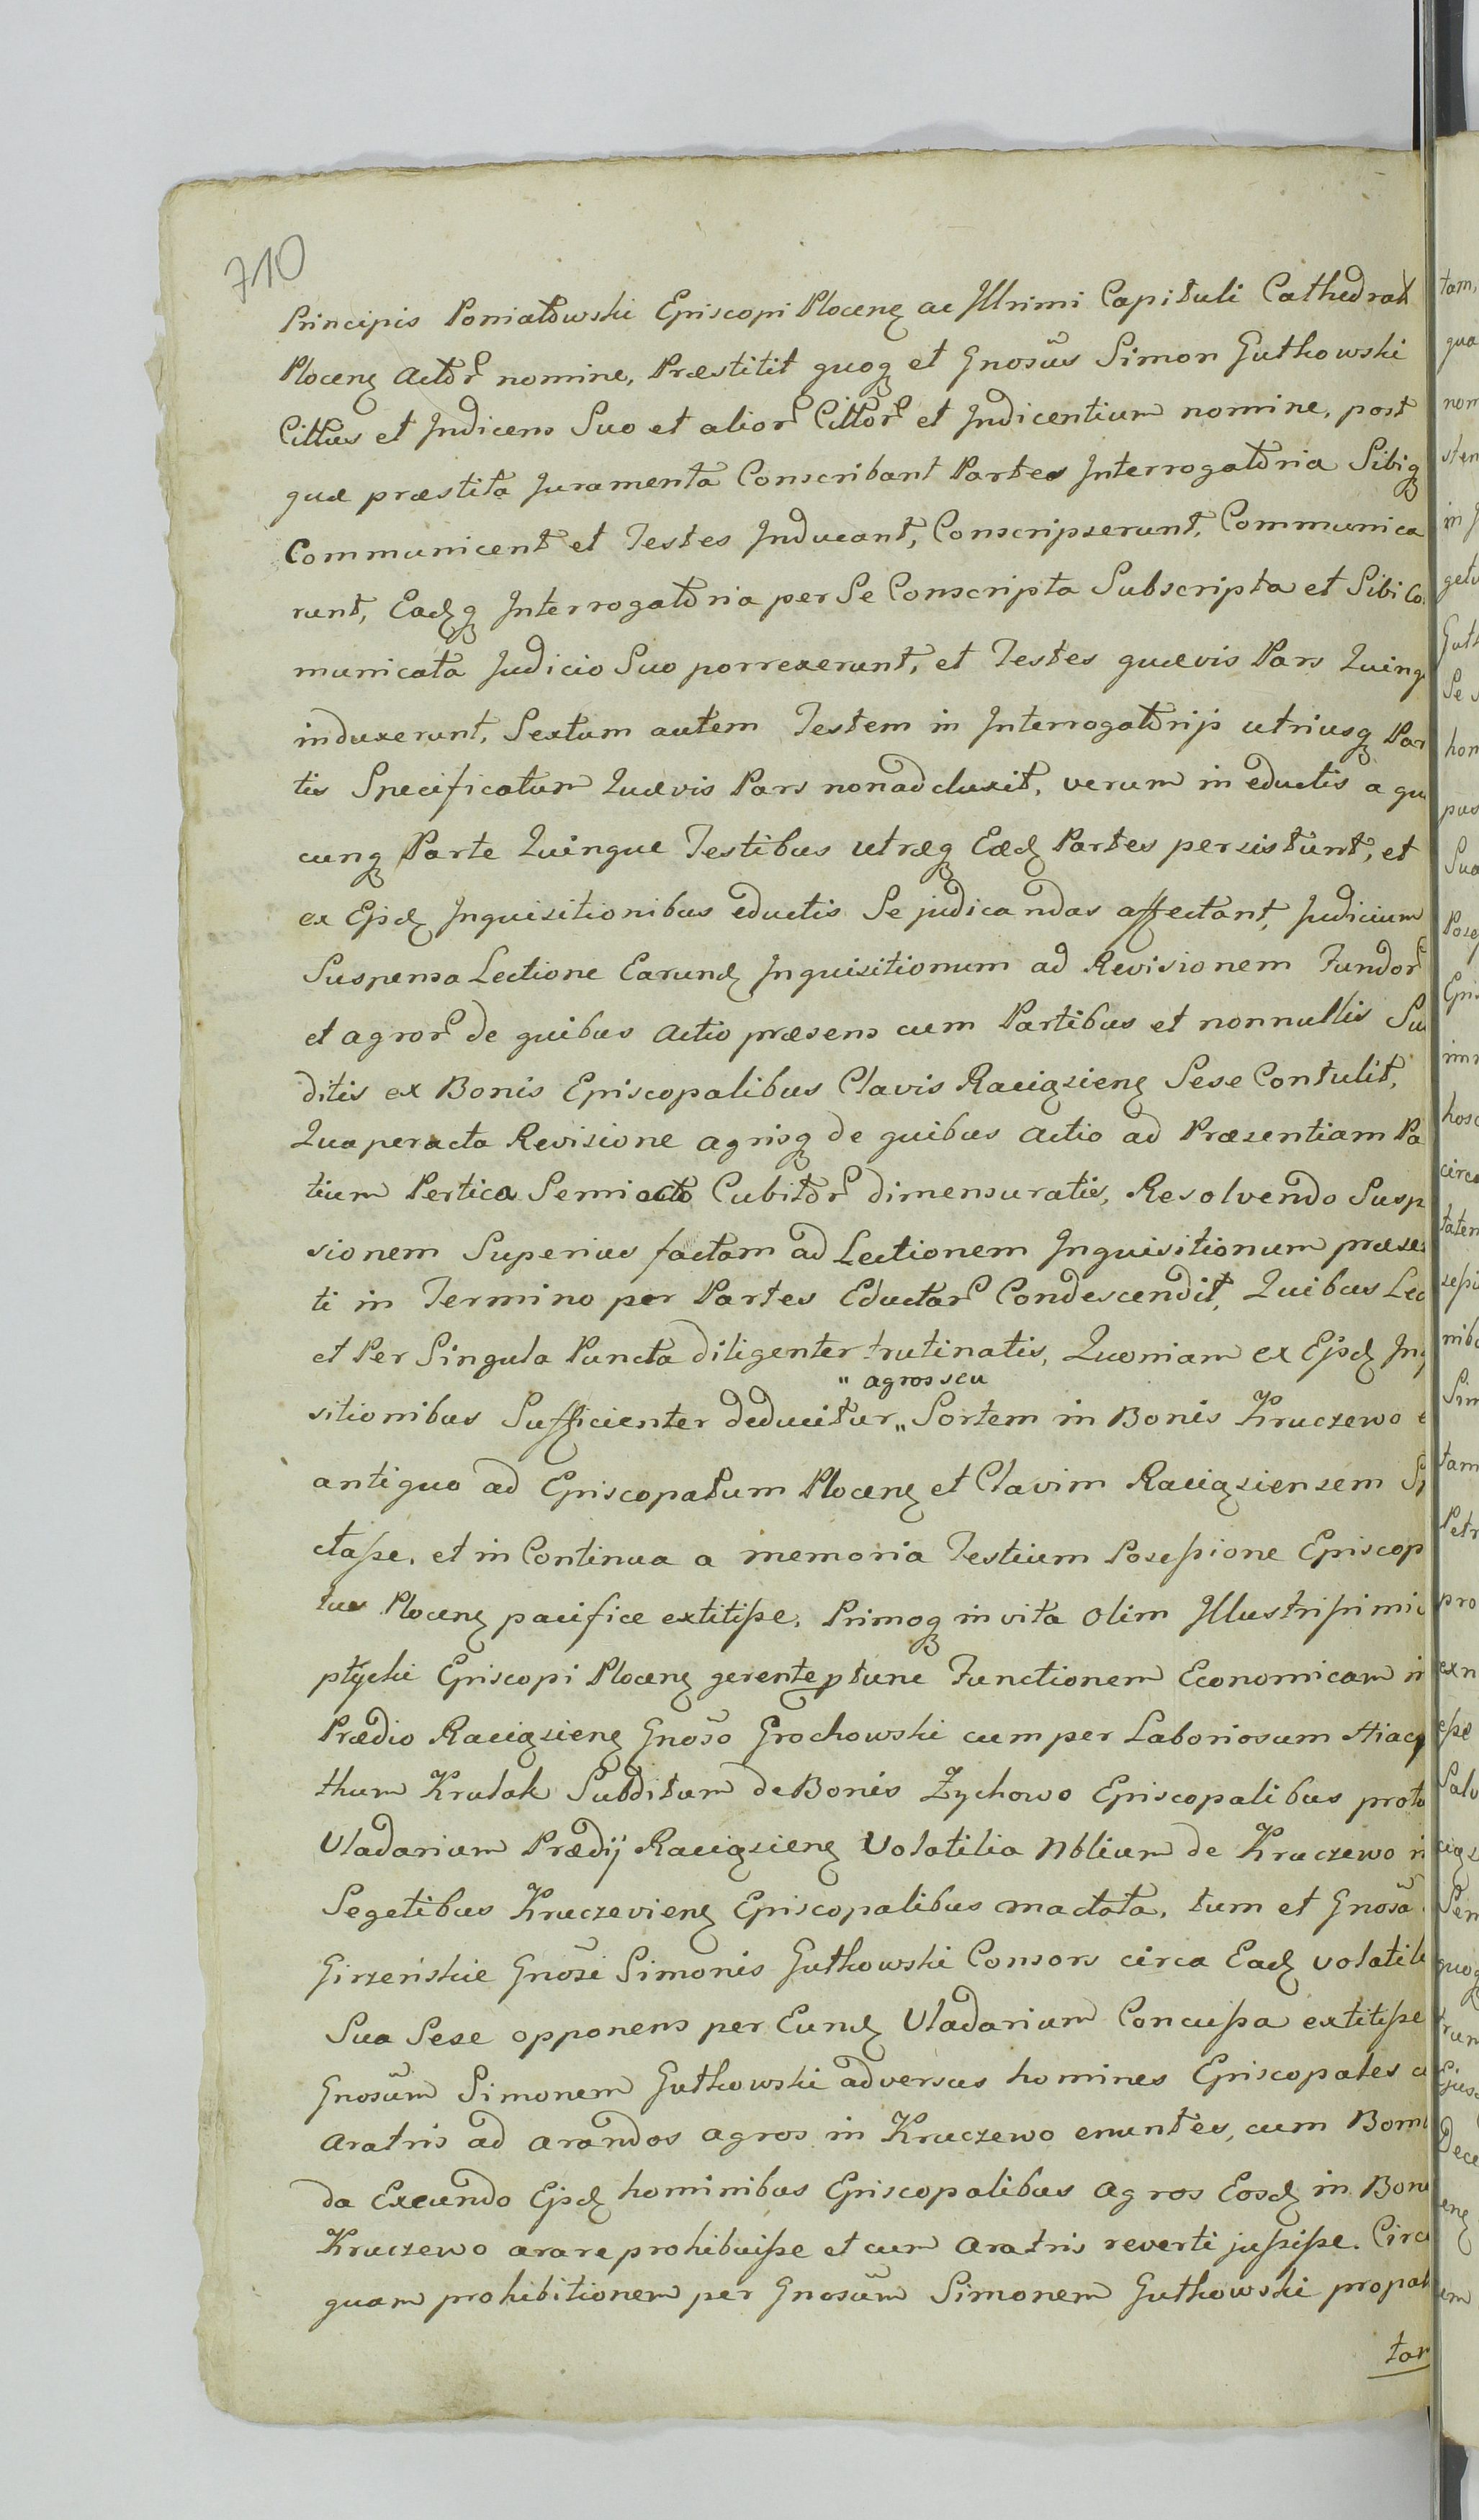 710
Principis Poniatowski Episcopi Plocenȝ ac Illrimi Capituli Cathedral
Plocenȝ Actor̃ nomine, Præstitit quoqȝ et Gnosũs Simon Gutkowski
Cittus et Indicens Suo et alior̃ Cittor̃ et Indicentium nomine, post
quæ præstita Juramenta Conscribant Partes Interrogatoria Sibiqȝ
Communicent et Testes Inducant, Conscripserunt, Communica
runt, Eadȝqȝ Interrogatoria per Se Conscripta Subscripta et Sibi Co
municata Judicio Suo porrexerunt, et Testes quævis Pars Quinq
induxerunt, Sextum autem Testem in Interrogatorijs utriusqȝ Par
tis Specificatum Quævis Pars non adduxit, verum in eductis a qu
cunqȝ Parte Quinque Testibus utræqȝ Eædȝ Partes persistunt, et
ex Ejsdȝ Inquisitionibus eductis Se judicandas affectant, Judicium
Suspensa Lectione Earundȝ Inquisitionum ad Revisionem Fundor̃
et agror̃ de quibus actio præsens cum Partibus et nonnullis Su
ditis ex Bonis Episcopalibus Clavis Raciązienȝ Sese Contulit,
Qua peracta Revisione agrisqȝ de quibus actio ad Præsentiam Pa
tium Pertica Semiocto Cubitor̃ dimensuratis, Resolvendo Susp
sionem Superius factam ad Lectionem Inquisitionum præse
ti in Termino per Partes Eductar̃ Condescendit, Quibus Lec
et Per Singula Puncta diligenter trutinatis, Quoniam ex Ejsdȝ Inq
" agros seu
sitionibus Sufficienter deducitur „ Sortem in Bonis Kruczewo e
antiquo ad Episcopatum Plocenȝ et Clavim Raciąziensem S
ctaſse, et in Continua a memoria Testium Poseſsione Episcop
tus Plocenȝ pacifice extitiſse, Primoqȝ in vita olim Illustriſsimi
ptycki Episcopi Plocenȝ gerente ptunc Functionem Economicam in
Prædio Raciązienȝ Gnoso Grochowski cum per Laboriosum Hiacy
thum Krulak Subditum de Bonis Zychowo Episcopalibus protu
Vladarium Prædij Raciązienȝ Volatilia Nblium de Kruczewo in
Segetibus Kruczevienȝ Episcopalibus mactata, tum et Gnosa
Girzeńskie Gnosi Simonis Gutkowski Consors circa Eadȝ volatil
Sua Sese opponens per Eundȝ Vladarium Concuſsa extitiſse
Gnosũm Simonem Gutkowski adversus homines Episcopales c
Aratris ad arandos agros in Kruczewo enuntes, cum Bom
da Exeundo Ejsdȝ hominibus Episcopalibus agros Eosdȝ in Bon
Kruczewo arare prohibuiſse et cum Aratris reverti juſsiſse. Circ
quam prohibitionem per Gnosũm Simonem Gutkowski propat
tar